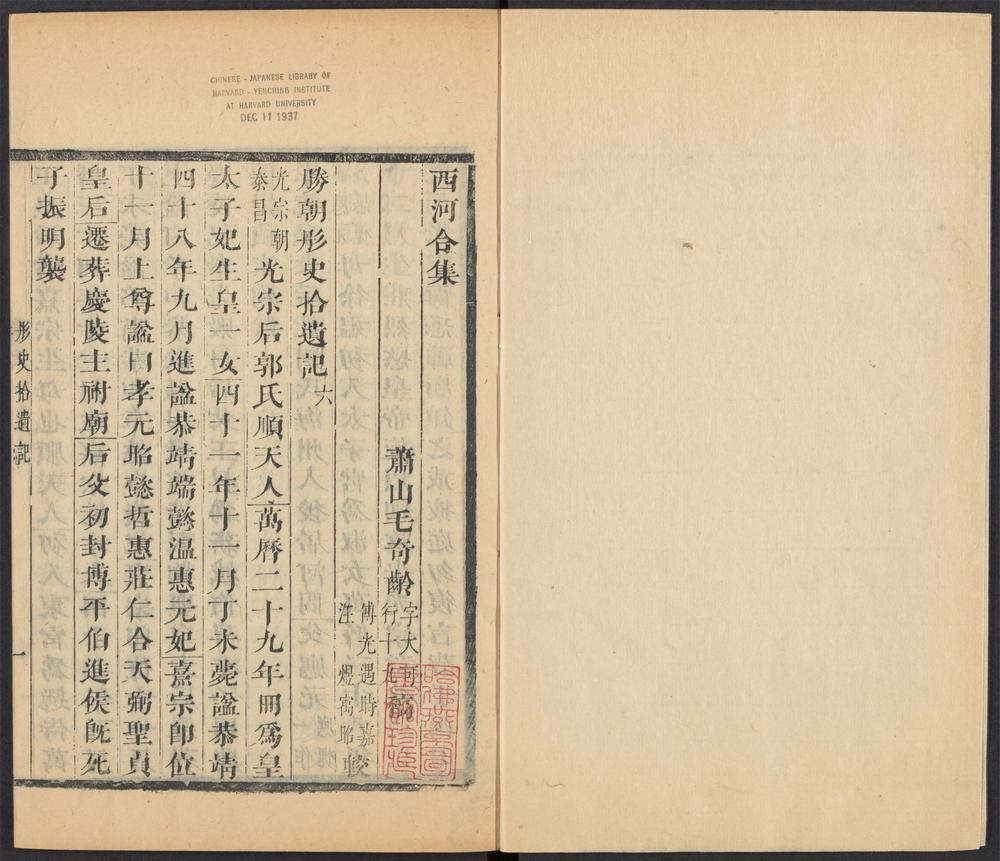 CHINESE - JAPANESE LIBRARY OF
HARVARD - YENCHING INSTITUTE
AT HARVARD UNIVERSITY
DEC 11 1937
西河合集
蕭山毛奇齡字大可行十九稿
傅光遇時嘉
汪煜寓昭較
勝朝彤史拾遺記六
光宗朝
泰昌
光宗后郭氏順天人萬曆二十九年冊爲皇
太子妃生皇一女四十一年十一月丁未薨諡恭靖
四十八年九月進諡恭靖端懿温惠元妃熹宗卽位
十一月上尊諡曰孝元昭懿哲惠莊仁合天弼聖貞
皇后遷葬慶陵主祔廟后父初封博平伯進侯旣死
子振明襲
彤史拾遺記
一